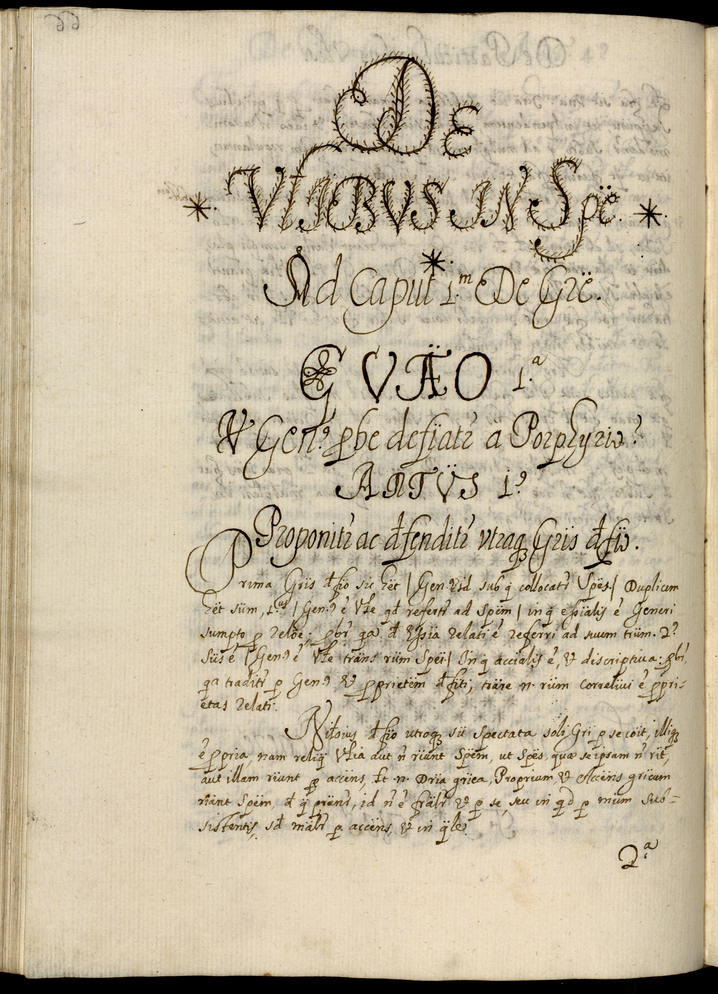 De
VLIBUS IN Spē
Ad Caput 1.m De Grē.
QVÃO 1.a
Vt Gen.9 pbe defiatr a Porphyrio?
ARTUS 1.9
Proponitr ac dfenditr utraq; Gris dfio.
Prima Gris dfio sic hēt | Gen.9 id, sub q collocatr Spēs | Duplicem
hēt süm, 1.us | Gen.9 ē Vle qd refertr ad Spēm | in q ēssialis ē Generi
sumpto p relōe; pbr qa d Essia relati ē referri ad suum trüm. 2.9
süs ē | Gen.9 ē Vle trans rüm Spēi | In q accialis ē, et discriptiva: pbr,
qa traditr p Gen.9 et pprietēm dfiti; träre n. rüm correlivi ē ppri-
etas relati.
dfio utroq; sü spectata soli Gri p se coit, illiq;
ē ppria, nam reliq Vlia aut n riunt Spēm, ut Spēs, quæ se ipsam n rit,
aut illam riunt p accēns, Et n. Dria grica, Proprium, et Accēns gricum
riant Spēm, d q prēnr, id n ē frälr et p se, seu in qd p mum sub-
sistentis, sd mälr p accēns, et in qle.
2.a